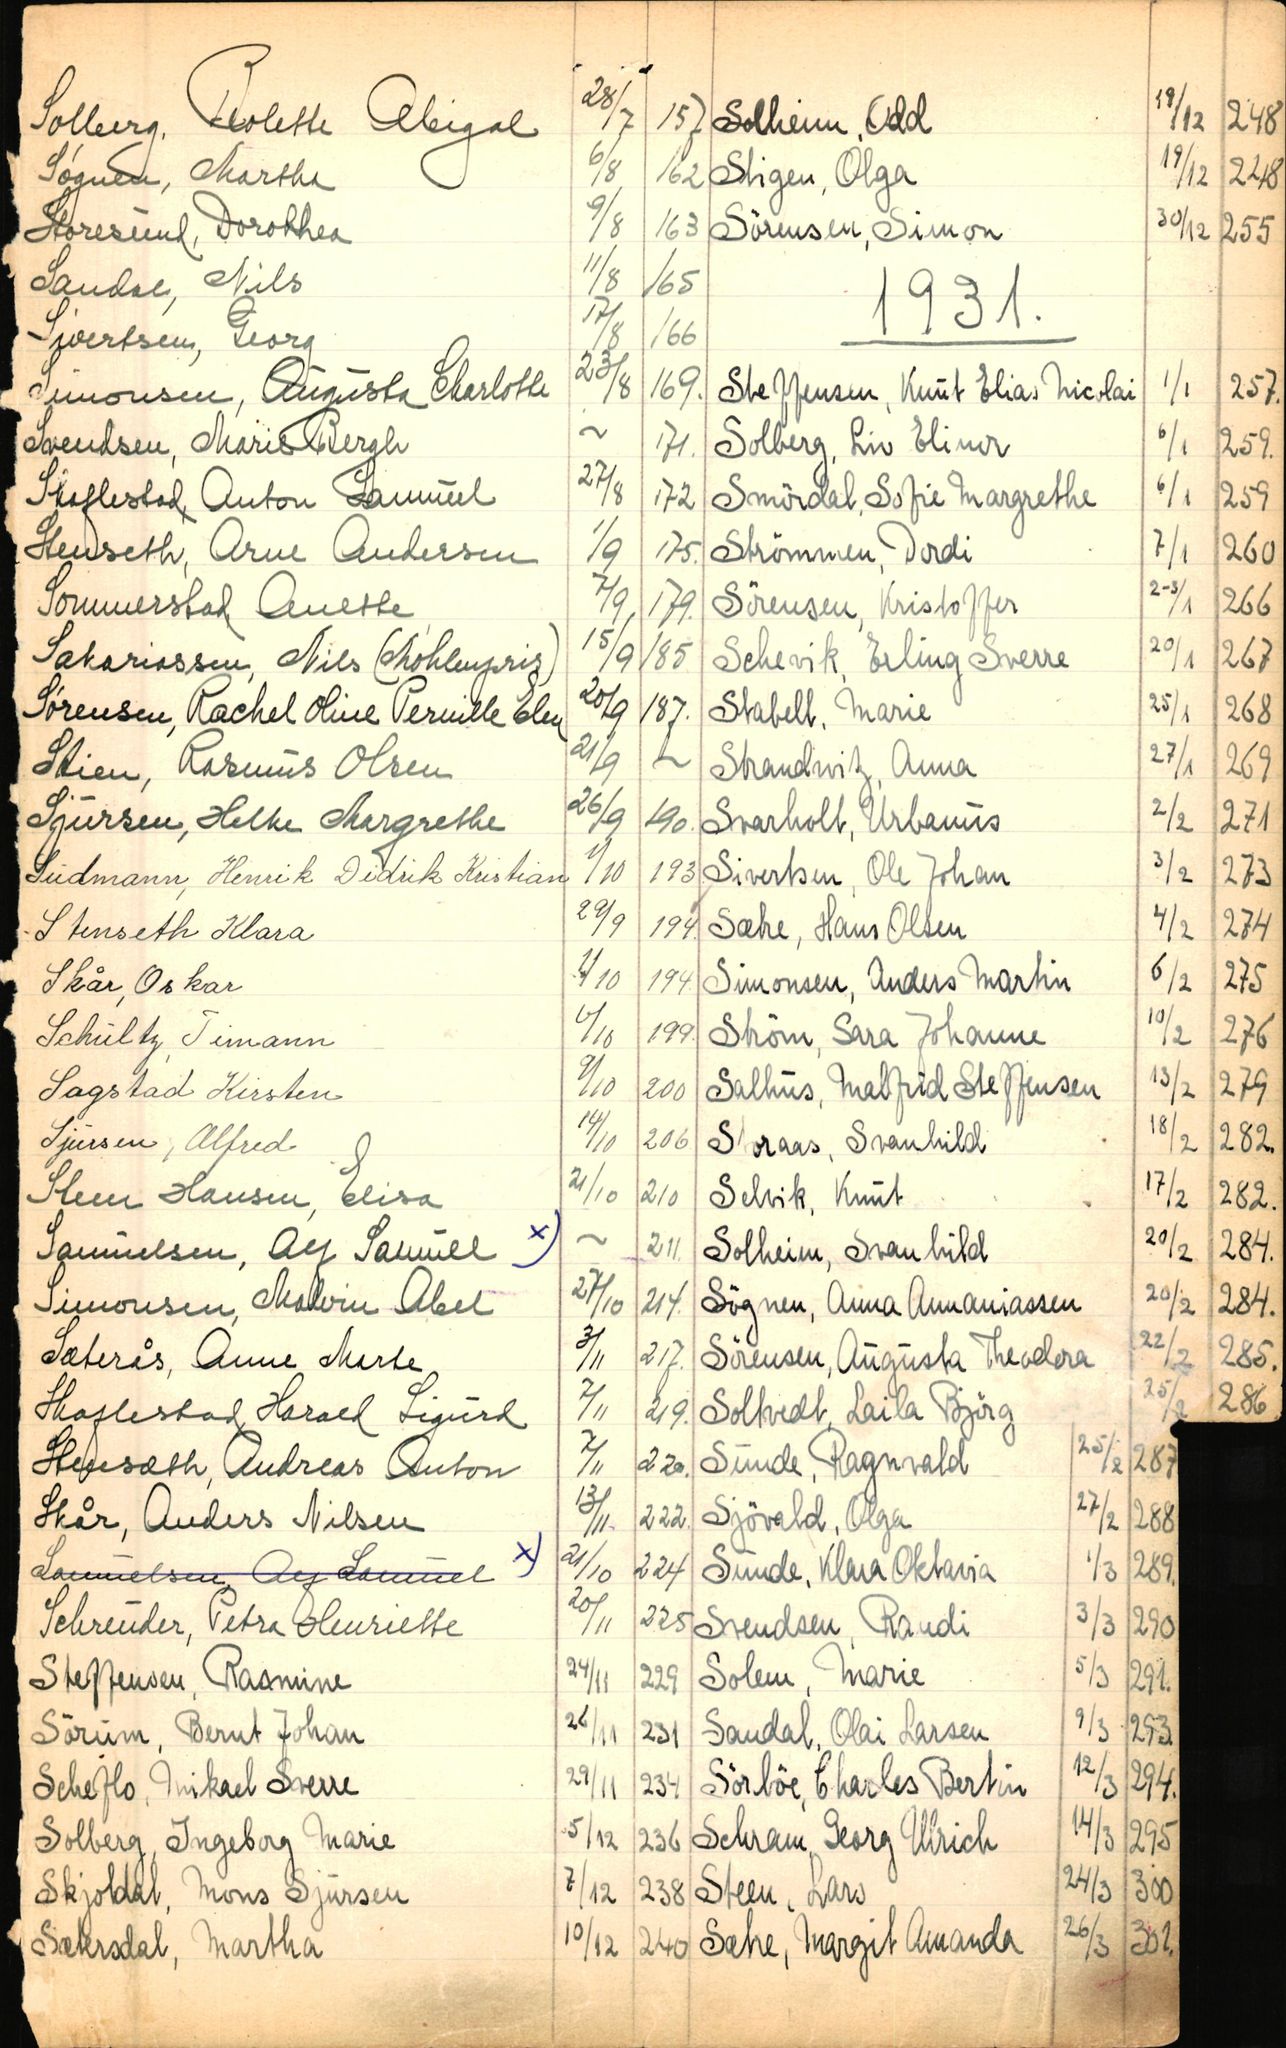 Solberg, Rolette Abigal 28/7 157
Søgnen, Martha 6/8 162
Storesund, Dorothea 9/8 163
Sandal, Nils 11/8 165
Sivertsen, Georg 17/8 166
Simonsen, Augusta Charlotte 23/8 169.
Svendsen, Marie Bergh ~ 171.
Skaflestad, Anton Samuel 27/8 172
Stenseth, Arne Andersen 1/9 175.
Sommerstad, Anette 7/9 179.
Sakariassen, Nils (Möhlenpris) 15/9 185
Sørensen, Rachel Oline Pernille Elen 20/9 187.
Stien, Rasmus Olsen 21/9 ~
Sjursen, Helke Margrethe 26/9 190.
Südmann, Henrik Didrik Kristian 1/10 193
Stenseth Klara 29/9 194.
Skår, Oskar 1/10 194.
Schultz, Timann 6/10 199.
Sagstad Kirsten 9/10 200
Sjursen, Alfred 14/10 206
Steen Hansen, Elisa 21/10 210
Samuelsen, Aj Samuel x) ~ 211.
Simonsen, Malvin Abel 27/10 214.
Sæterås, Anne Marte 3/11 217.
Skaflestad Harald Sigurd 7/11 219.
Stensæth, Andreas Anton 7/11 220.
Skår, Anders Nilsen 13/11 222.
Samuelsen, Aj Samuel x) 21/10 224
Schreuder, Petra Henriette 20/11 225
Steffensen, Rasmine 24/11 229
Sörum, Bernt Johan 26/11 231
Scheflo, Mikael Sverre 29/11 234
Solberg, Ingeborg Marie 5/12 236
Skjoldal, Mons Sjursen 7/12 238
Sætersdal, Martha 10/12 240
Solheim, Odd 19/12 248
Stigen, Olga 19/12 248
Sörensen, Simon 30/12 255
1931.
Steffensen, Knut Elias Nicolai 1/1 257.
Solberg, Liv Elinor 6/1 259.
Smördal, Sofie Margrethe 6/1 259
Strömmen, Dordi 7/1 260
Sörensen, Kristoffer 2-3/1 266
Schevik, Erling Sverre 20/1 267
Stabell, Marie 25/1 268
Strandwitz, Anna 27/1 269
Svarholt, Urbanus 2/2 271
Sivertsen, Ole Johan 3/2 273
Sætre, Hans Olsen 4/2 274
Simonsen, Anders Martin 6/2 275
Ström, Sara Johanne 10/2 276
Salhus, Malfrid Steffensen 13/2 279
Storaas, Svanhild 18/2 282.
Selvik, Knut 17/2 282.
Solheim, Svanhild 20/2 284.
Sögnen, Anna Annaniassen 20/2 284.
Sörensen, Augusta Theodora 22/2 285.
Soltvedt, Laila Björg 25/2 286
Sunde, Ragnvald 25/2 287
Sjövald, Olga 27/2 288
Sunde, Klara Oktavia 1/3 289.
Svendsen, Randi 3/3 290
Solem, Marie 5/3 291.
Sandal, Olai Larsen 9/3 293
Sörböe, Charles Bertin 12/3 294.
Schram, Georg Ulrich 14/3 295
Steen, Lars 24/3 300
Sætre, Margit Amanda 26/3 301.